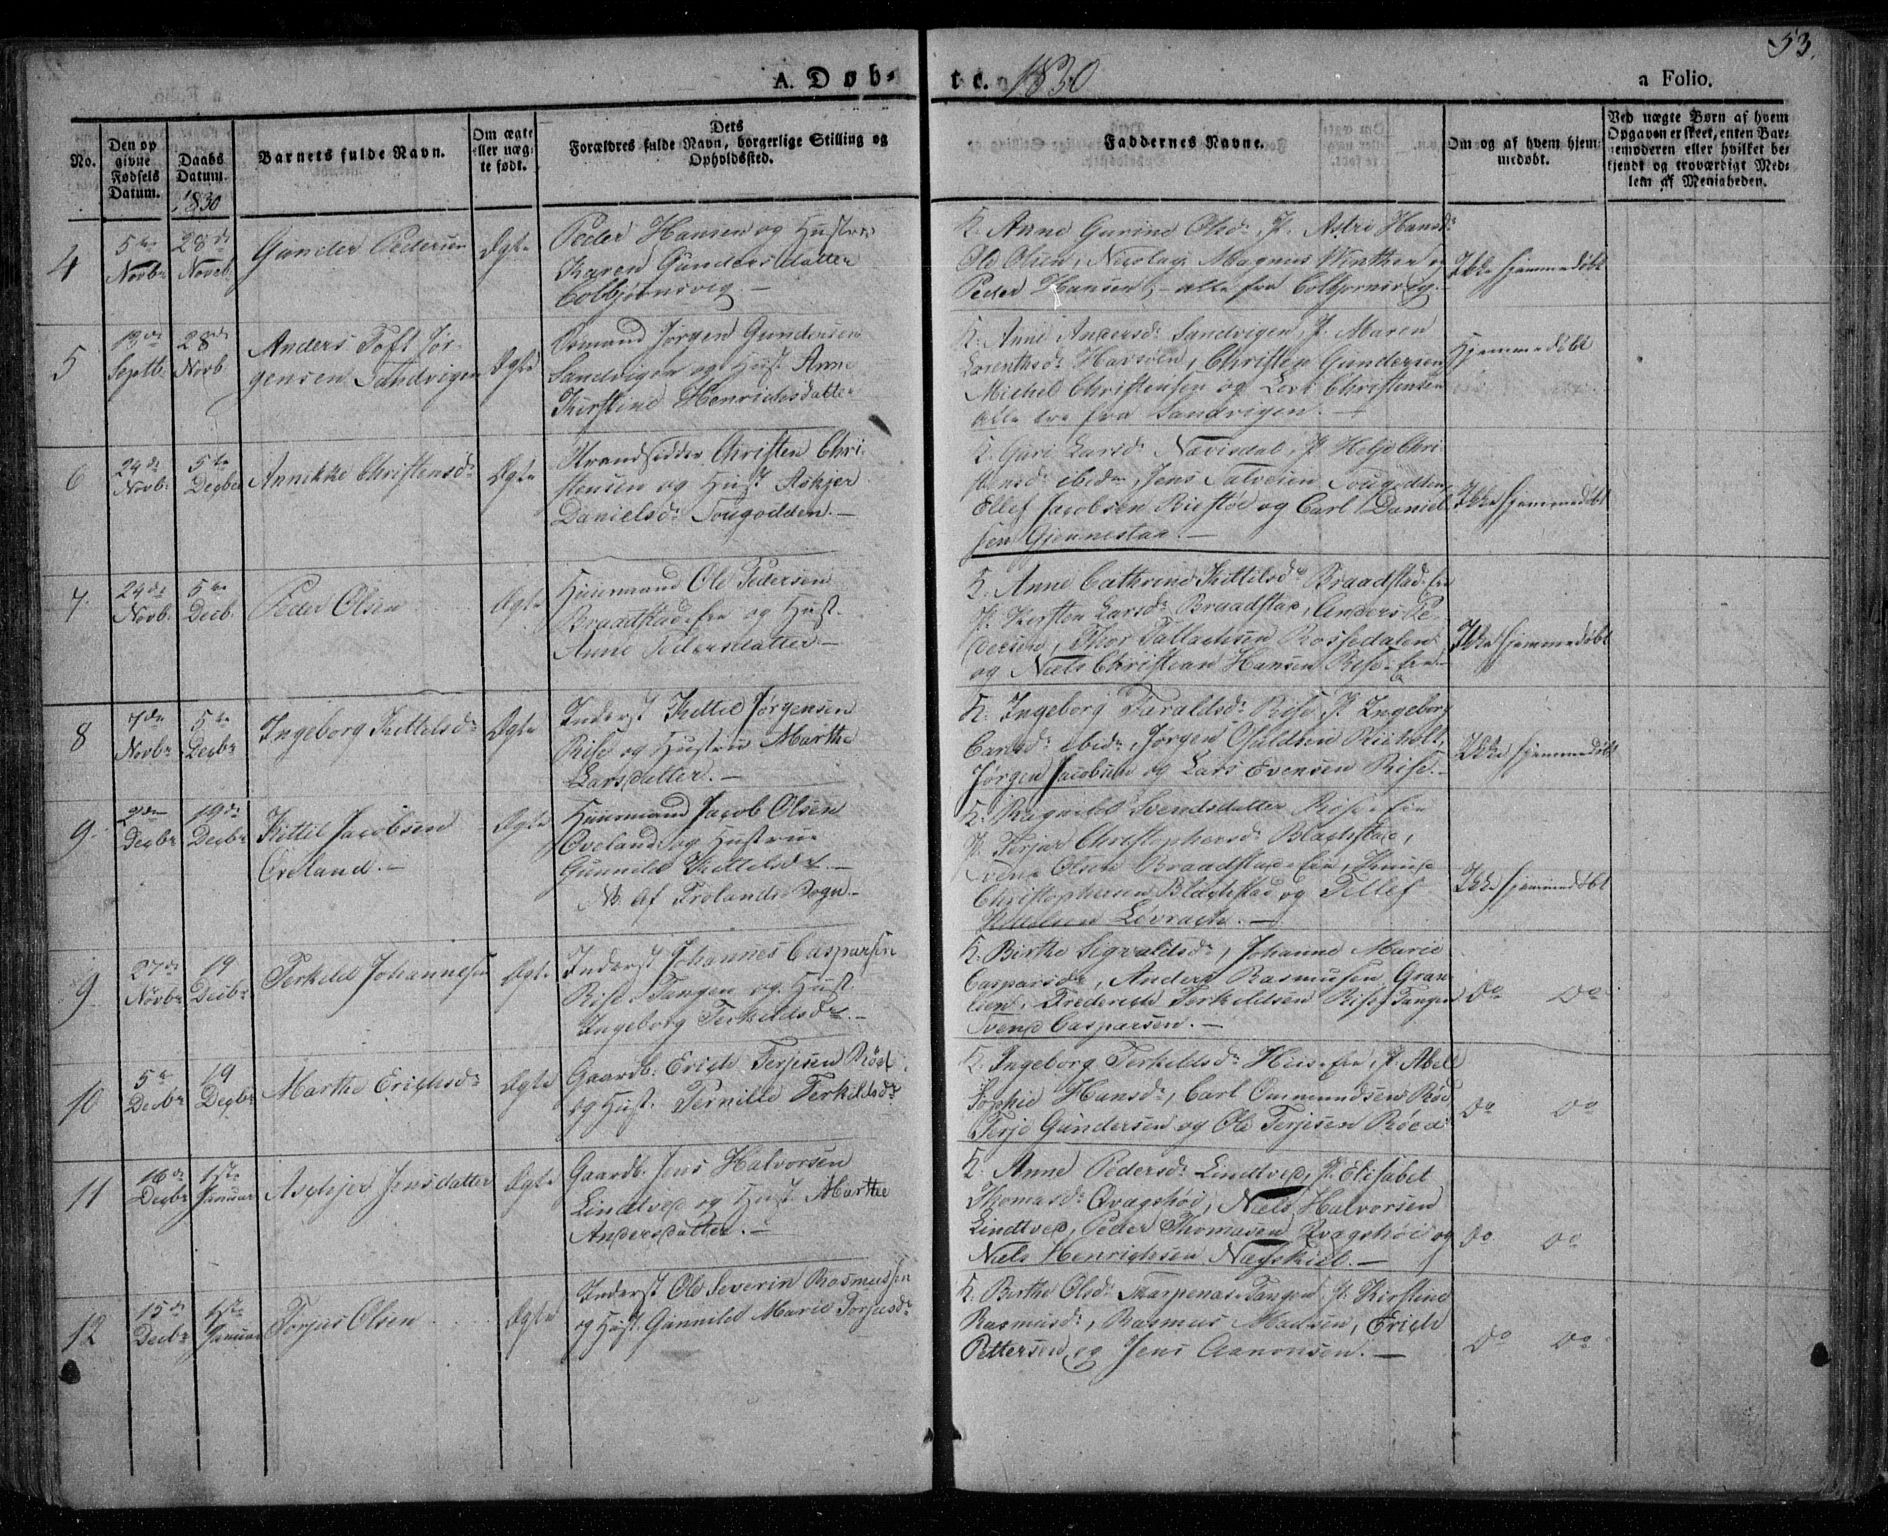 53.
A. Døb-
te. 1830
a Folio.
No.
Den op
givne
Fødsels
Datum.
Daabs
Datum.
1830
Barnets fulde Navn.
Om ægte
eller uæg-
te født.
Dets
Forældres fulde Navn, borgerlige Stilling og
Opholdssted.
Faddernes Navne.
Om og af hvem hjem-
medøbt.
Ved uægte Børn af hvem
Opgaven er skeet, enten Bar-
nemoderen eller hvilket be-
kjendt og troværdigt Med-
lem af Menigheden.
4
5te
Novbr
28de
Novb.
Gunder Pedersen
Ægte
Peder Hansen og Hustru
Karen Gundersdatter
Colbjørnsvig. —
K. Anne Gurine Olsdr, P. Astri Hansdr
Ole Olsen, Nicolay Magnus Winther og
Peder Hansen, — alle fra Colbjørnsvig. —
Ikke hjemmedøbt
5
19de
Septb.
28de
Novb
Anders Toft Jør-
gensen Sandvigen
Ægte
Jørgen Gundersen
Sandvigen og Hust. Anne
Kirstine Henrichsdatter
K. Anne Andersdr Sandvigen, P. Maren
Lorentsdr Havsøen, Christen Gundersen
Michel Christensen og Lars Christensen
alle tre fra Sandvigen. —
Hjemmedøbt
6
24de
Novb.
5te
Decbr
Annikke Christensdr
Ægte
Strandsidder Christen Chri-
stensen og Hust. Askjer
Danielsdr Songodden. —
K. Guri Larsdr Nævisdal, P. Helje Chri-
stensdr ibidm, Jens Salvesen Songodden
Ellef Jacobsen Biestøe og Carl Daniel-
sen Gjennestad. —
Ikke hjemmedøbt
7.
24de
Novb.
5te
Decb.
Peder Olsen
Ægte
Huusmand Ole Pedersen
Braadstad-Eie og Hust.
Anne Pedersdatter. —
K. Anne Cathrine Kittilsdr Braadstad-Eie
P. Kirsten Larsdr Braadstad, Anders Pe-
dersen, Thor Tallachsen Rossedalen
og Niels Christian Hansen Rise-Eie —
Ikke hjemmedøbt
8
7de
Novbr
5te
Decbr
Ingeborg Kittelsdr
Ægte
Inderst Kittel Jørgensen
Rise og Hustru Marthe
Larsdatter. —
K. Ingeborg Taraldsdr Rise, P. Ingeborg
Larsdr ibidm, Jørgen Osuldsen Rieholt,
Jørgen Jacobsen og Lars Evensen Rise. —
Ikke hjemmedøbt
9.
2den
Decbr
19de
Decbr
Kittil Jacobsen
Oveland. —
Ægte
Huusmand Jacob Olsen
Oveland og Hustrue
Gunnild Kittelsdr —
NB. Af Frolands Sogn. —
K. Ragnild Svendsdatter Rise-Eie
P. Terjer Christophersdr Blachstad,
Svend Olsen Braadstad-Eie, Knud
Christophersen Blachstad og Tellef
Kittelsen Løvraak. —
Ikke hjemmedøbt
9
27de
Novbr
19
Decbr
Terkeld Johannesen
Ægte
Inderst Johannes Caspersen
Rise-Tangen og Hust.
Ingeborg Terkeldsdr. —
K. Birthe Sigvaldsdr, Johanne Marie
Caspersdr, Anders Rasmussen Gran-
lien, Frederich Terkeldsen Rise-Tangen
Svend Caspersen. —
Do Do
10
5te
Decbr
19
Decbr
Marthe Erichsdr
Ægte
Gaardb. Erich Terjesen Røed
og Hust. Pernille Terkildsdr
K. Ingeborg Terkeldsdr Eie, P. Abel
Sophie Hansdr, Carl Ommundsen Røed
Terje Gundersen og Ole Terjesen Røed
Do Do
11
16de
Decbr
1ste
Januar
Aschjer Jensdatter
Ægte
Gaardb. Jens Halvorsen
Lindtved og Hust. Marthe
Andersdatter. —
K. Anne Pedersdr Lindtved, P. Elisabet
Thomasdr Qvagshøi, Niels Halvorsen
Lindtved, Peder Thomassen Qvagshøi og
Niels Henrichsen Nægskiel. —
Do Do
12
15de
Decbr
1ste
Januar
Torjus Olsen
Ægte
Inderst Ole Severin Rasmussen
og Hust. Gunnild Marie Torjusdr
K. Birthe Olsdr Skarpenas-Tangen, P. Kirstine
Rasmusdr, Rasmus Madsen, Erich
Pettersen og Jens Aanonsen. —
Do Do